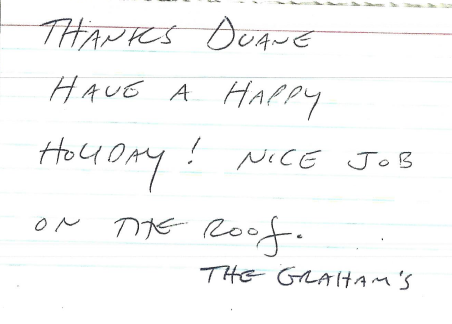 THANKS DUANE
HAVE A HAPPY
HOLIDAY! NICE JOB
ON THE ROOf.
THE GRAHAM'S